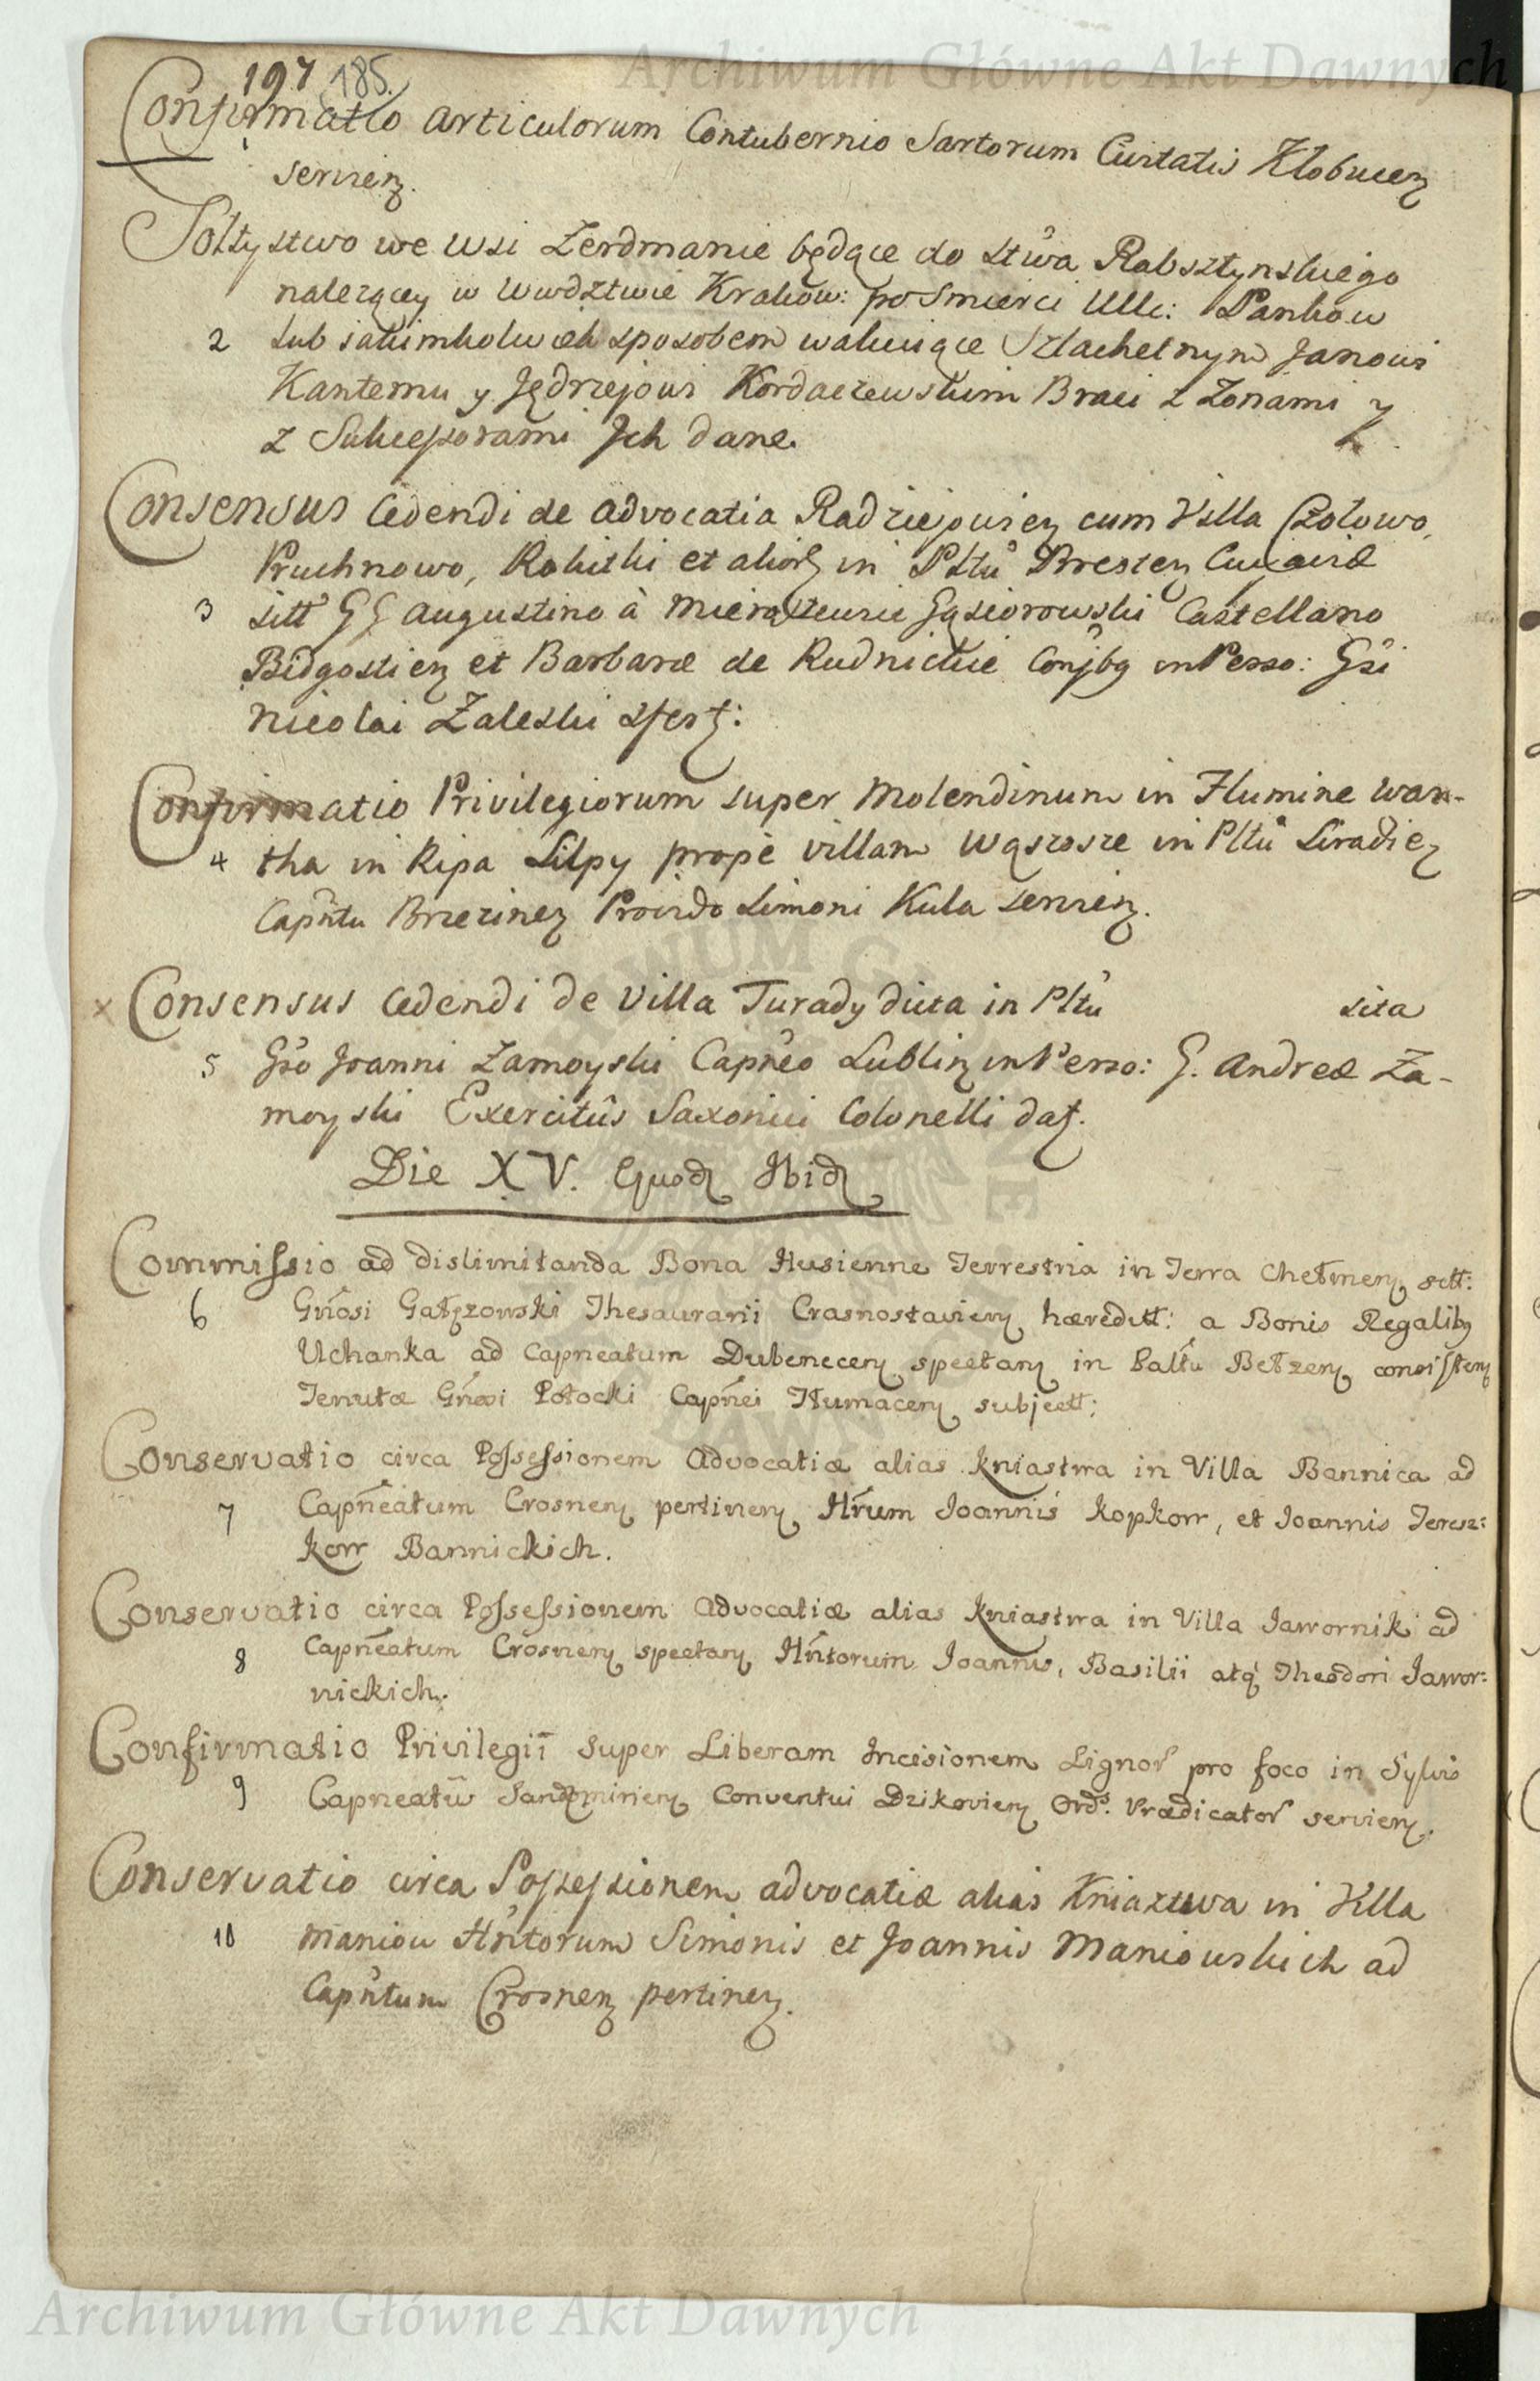 Archiwum Główne Akt Dawnych
197 185.
Confirmatio articulorum Contubernio Sartorum Civitatis Kłobucen
1 servien.
Sołtystwo we wsi Zerdmanie będące do Stwa Rabsztynskiego
nalezącey w Wwdztwie Krakow: po Smierci Ulli: Pankow
2 lub iakimkolwiek sposobem wakuiące Szlachetnym Janowi
Kantemu y Jędrzejowi Kordaczewskim Braci z Zonami y
z Sukcessorami Ich dane.
Consensus Cedendi de advocatia Radziejovien cum Villa Czołowo,
Pruchnowo, Rokitki et alior in Pltu Bresten Cujaviæ
3 sitt GG Augustino à Gąsiorowski Castellano
Bidgostien et Barbaræ de Rudnickie Conjbg in Perso: Gsi
Nicolai Zaleski
Confirmatio Privilegiorum super Molendinum in Flumine War-
4 tha in Ripa Lilpy propè villam Wąszosze in Pltu Siradien
Capntu Brzezinen Provido Simoni Kula servien.
x Consensus Cedendi de Villa Turady dicta in Pltu sita
5 Gso Joanni Zamoyski Capneo Lublin in Perso: G. Andreæ Za-
moyski Exercitûs Saxonici Colonelli dat.
Die XV. Ejusd Ibid
Commissio ad dislimitanda Bona Husienne Terrestria in Terra Chełmen sitt:
6 Gnosi Gałęzowski Thesaurarii Crasnostavien hæreditt: a Bonis Regalibg
Uchanka ad Capneatum Dubenecen spectan in Palltu Bełzen consisten
Tenutæ Gnosi Potocki Capnei Tłumacen subjectt:
Conservatio circa Possessionem Advocatiæ alias Kniastwa in Villa Bannica ad
7 Capneatum Crosnen pertinen Hrum Joannis Kopkow, et Joannis Teresz:
kow Bannickich.
Conservatio circa Possessionem Advocatiæ alias Kniastwa in Villa Jawornik ad
8 Capneatum Crosnen spectan Hntorum Joannis, Basilii atq Theodori Jawor:
nickich.
Confirmatio Privilegii super Liberam Incisionem Lignor pro foco in Sylvis
9 Capneatu Sandomirien Conventui Dzikovien Ords. Prædicator servien.
Conservatio circa Possessionem advocatiæ alias Kniaztwa in Villa
10 Maniow Hntorum Simonis et Joannis Maniowskich ad
Capntum Crosnen pertinen.
Archiwum Główne Akt Dawnych